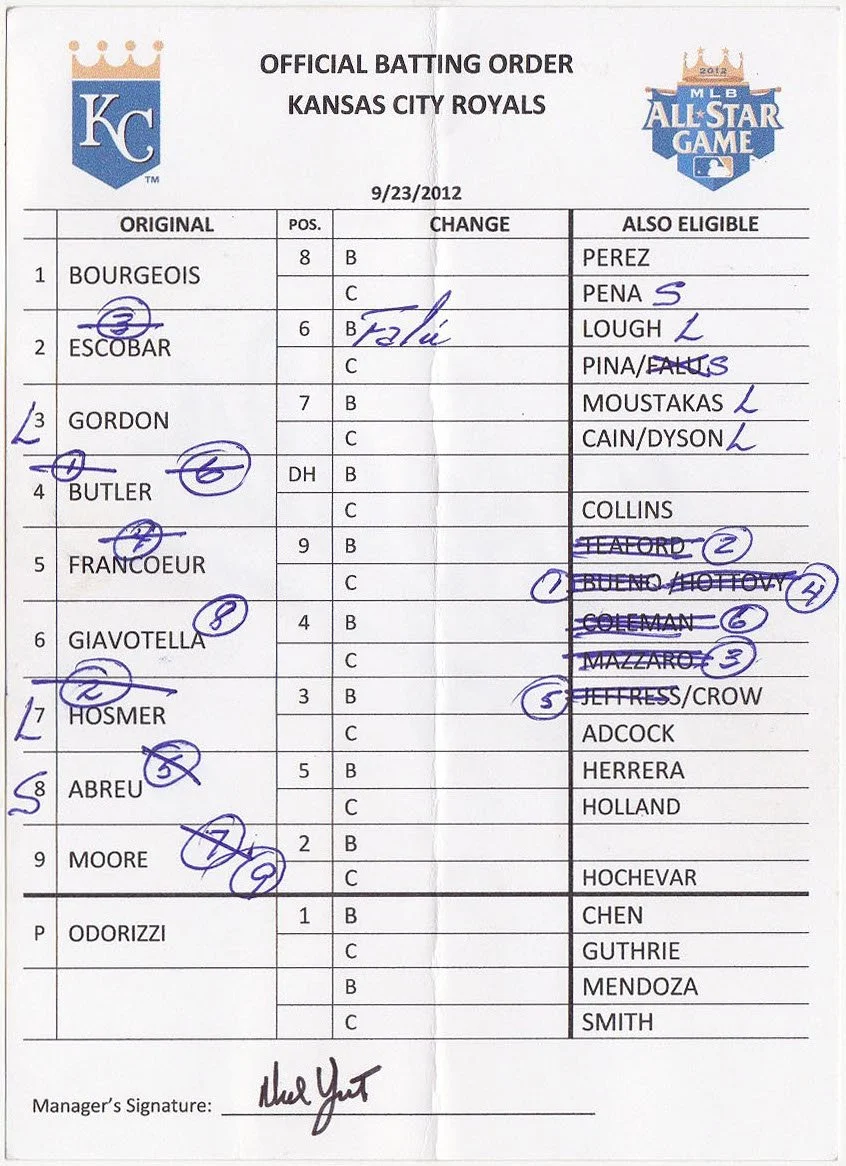 OFFICIAL BATTING ORDER
KANSAS CITY ROYALS
KC
TM
2012
MLB
ALL★STAR
GAME
9/23/2012
ORIGINAL POS. CHANGE ALSO ELIGIBLE
1 BOURGEOIS 8 B PEREZ
C PENA S
3
2 ESCOBAR 6 B Falú LOUGH L
C PINA/FALU S
L 3 GORDON 7 B MOUSTAKAS L
C CAIN/DYSON L
1 6
4 BUTLER DH B
C COLLINS
4
5 FRANCOEUR 9 B TEAFORD 2
C 1 BUENO/HOTTOVY 4
8
6 GIAVOTELLA 4 B COLEMAN 6
C MAZZARO 3
2
L 7 HOSMER 3 B 5 JEFFRESS/CROW
C ADCOCK
5
S 8 ABREU 5 B HERRERA
C HOLLAND
7
9 MOORE 2 B
9
C HOCHEVAR
P ODORIZZI 1 B CHEN
C GUTHRIE
B MENDOZA
C SMITH
Manager's Signature: Ned Yost